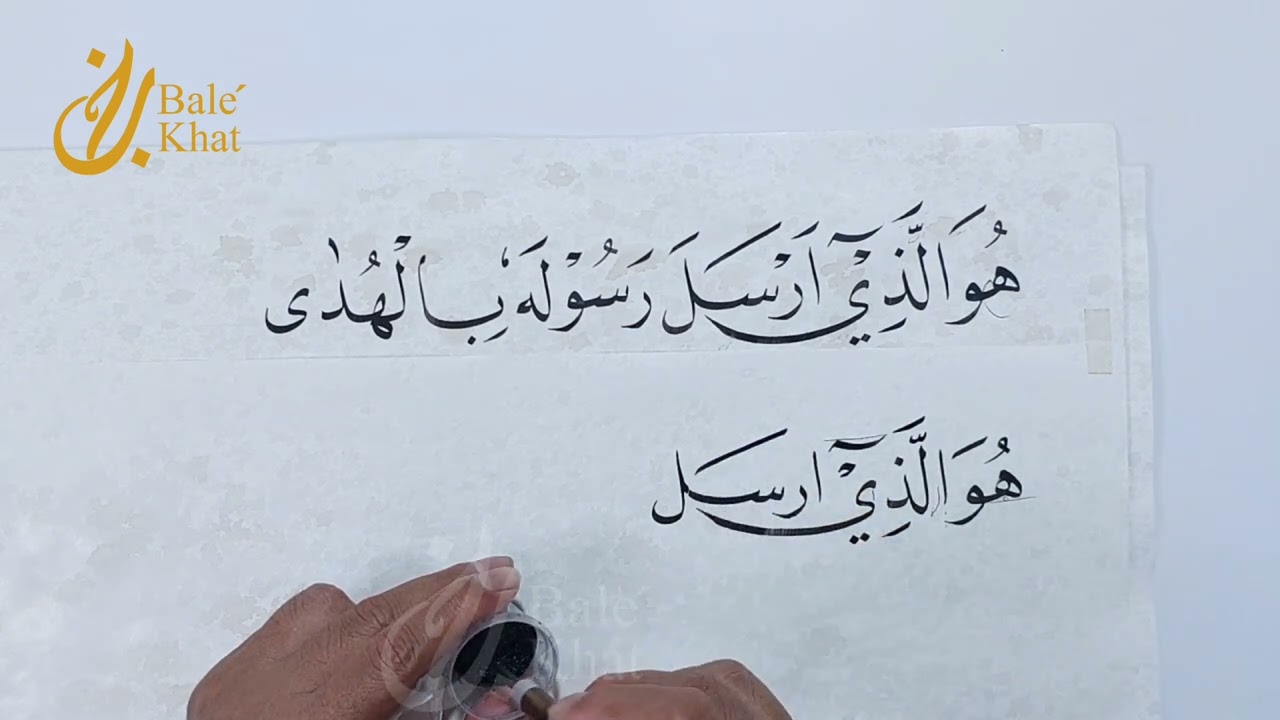 Bale´
Khat
هُوَ الَّذِيْٓ اَرْسَلَ رَسُوْلَهٗ بِالْهُدٰى
هُوَ الَّذِيْٓ ارسَل
Bale´
Khat